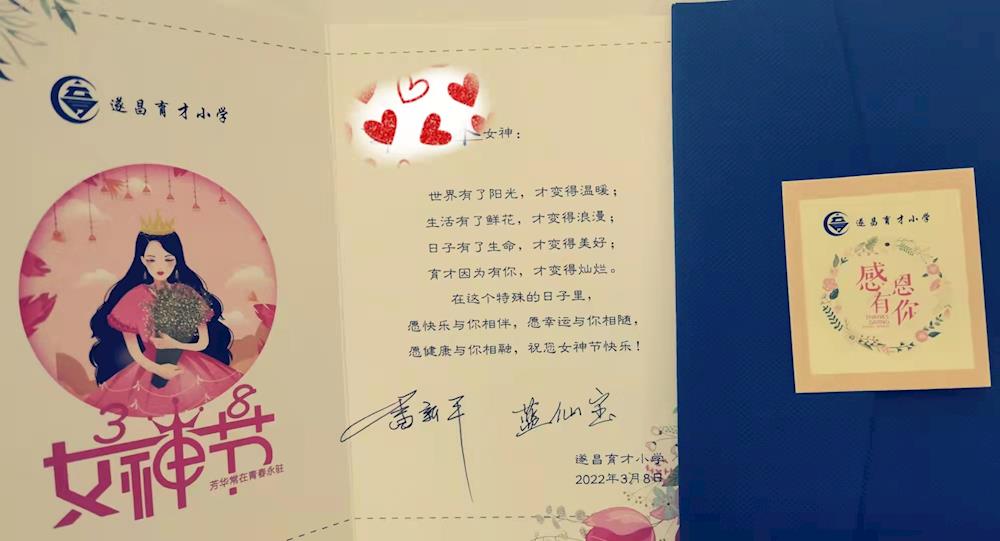 遂昌育才小学
3 8
女神节
芳华常在青春永驻
女神：
世界有了阳光，才变得温暖；
生活有了鲜花，才变得浪漫；
日子有了生命，才变得美好；
育才因为有你，才变得灿烂。
在这个特殊的日子里，
愿快乐与你相伴，愿幸运与你相随，
愿健康与你相融，祝您女神节快乐！
蓝仙宝
遂昌育才小学
2022年3月8日
遂昌育才小学
感恩
有你
THANKS
GIVING